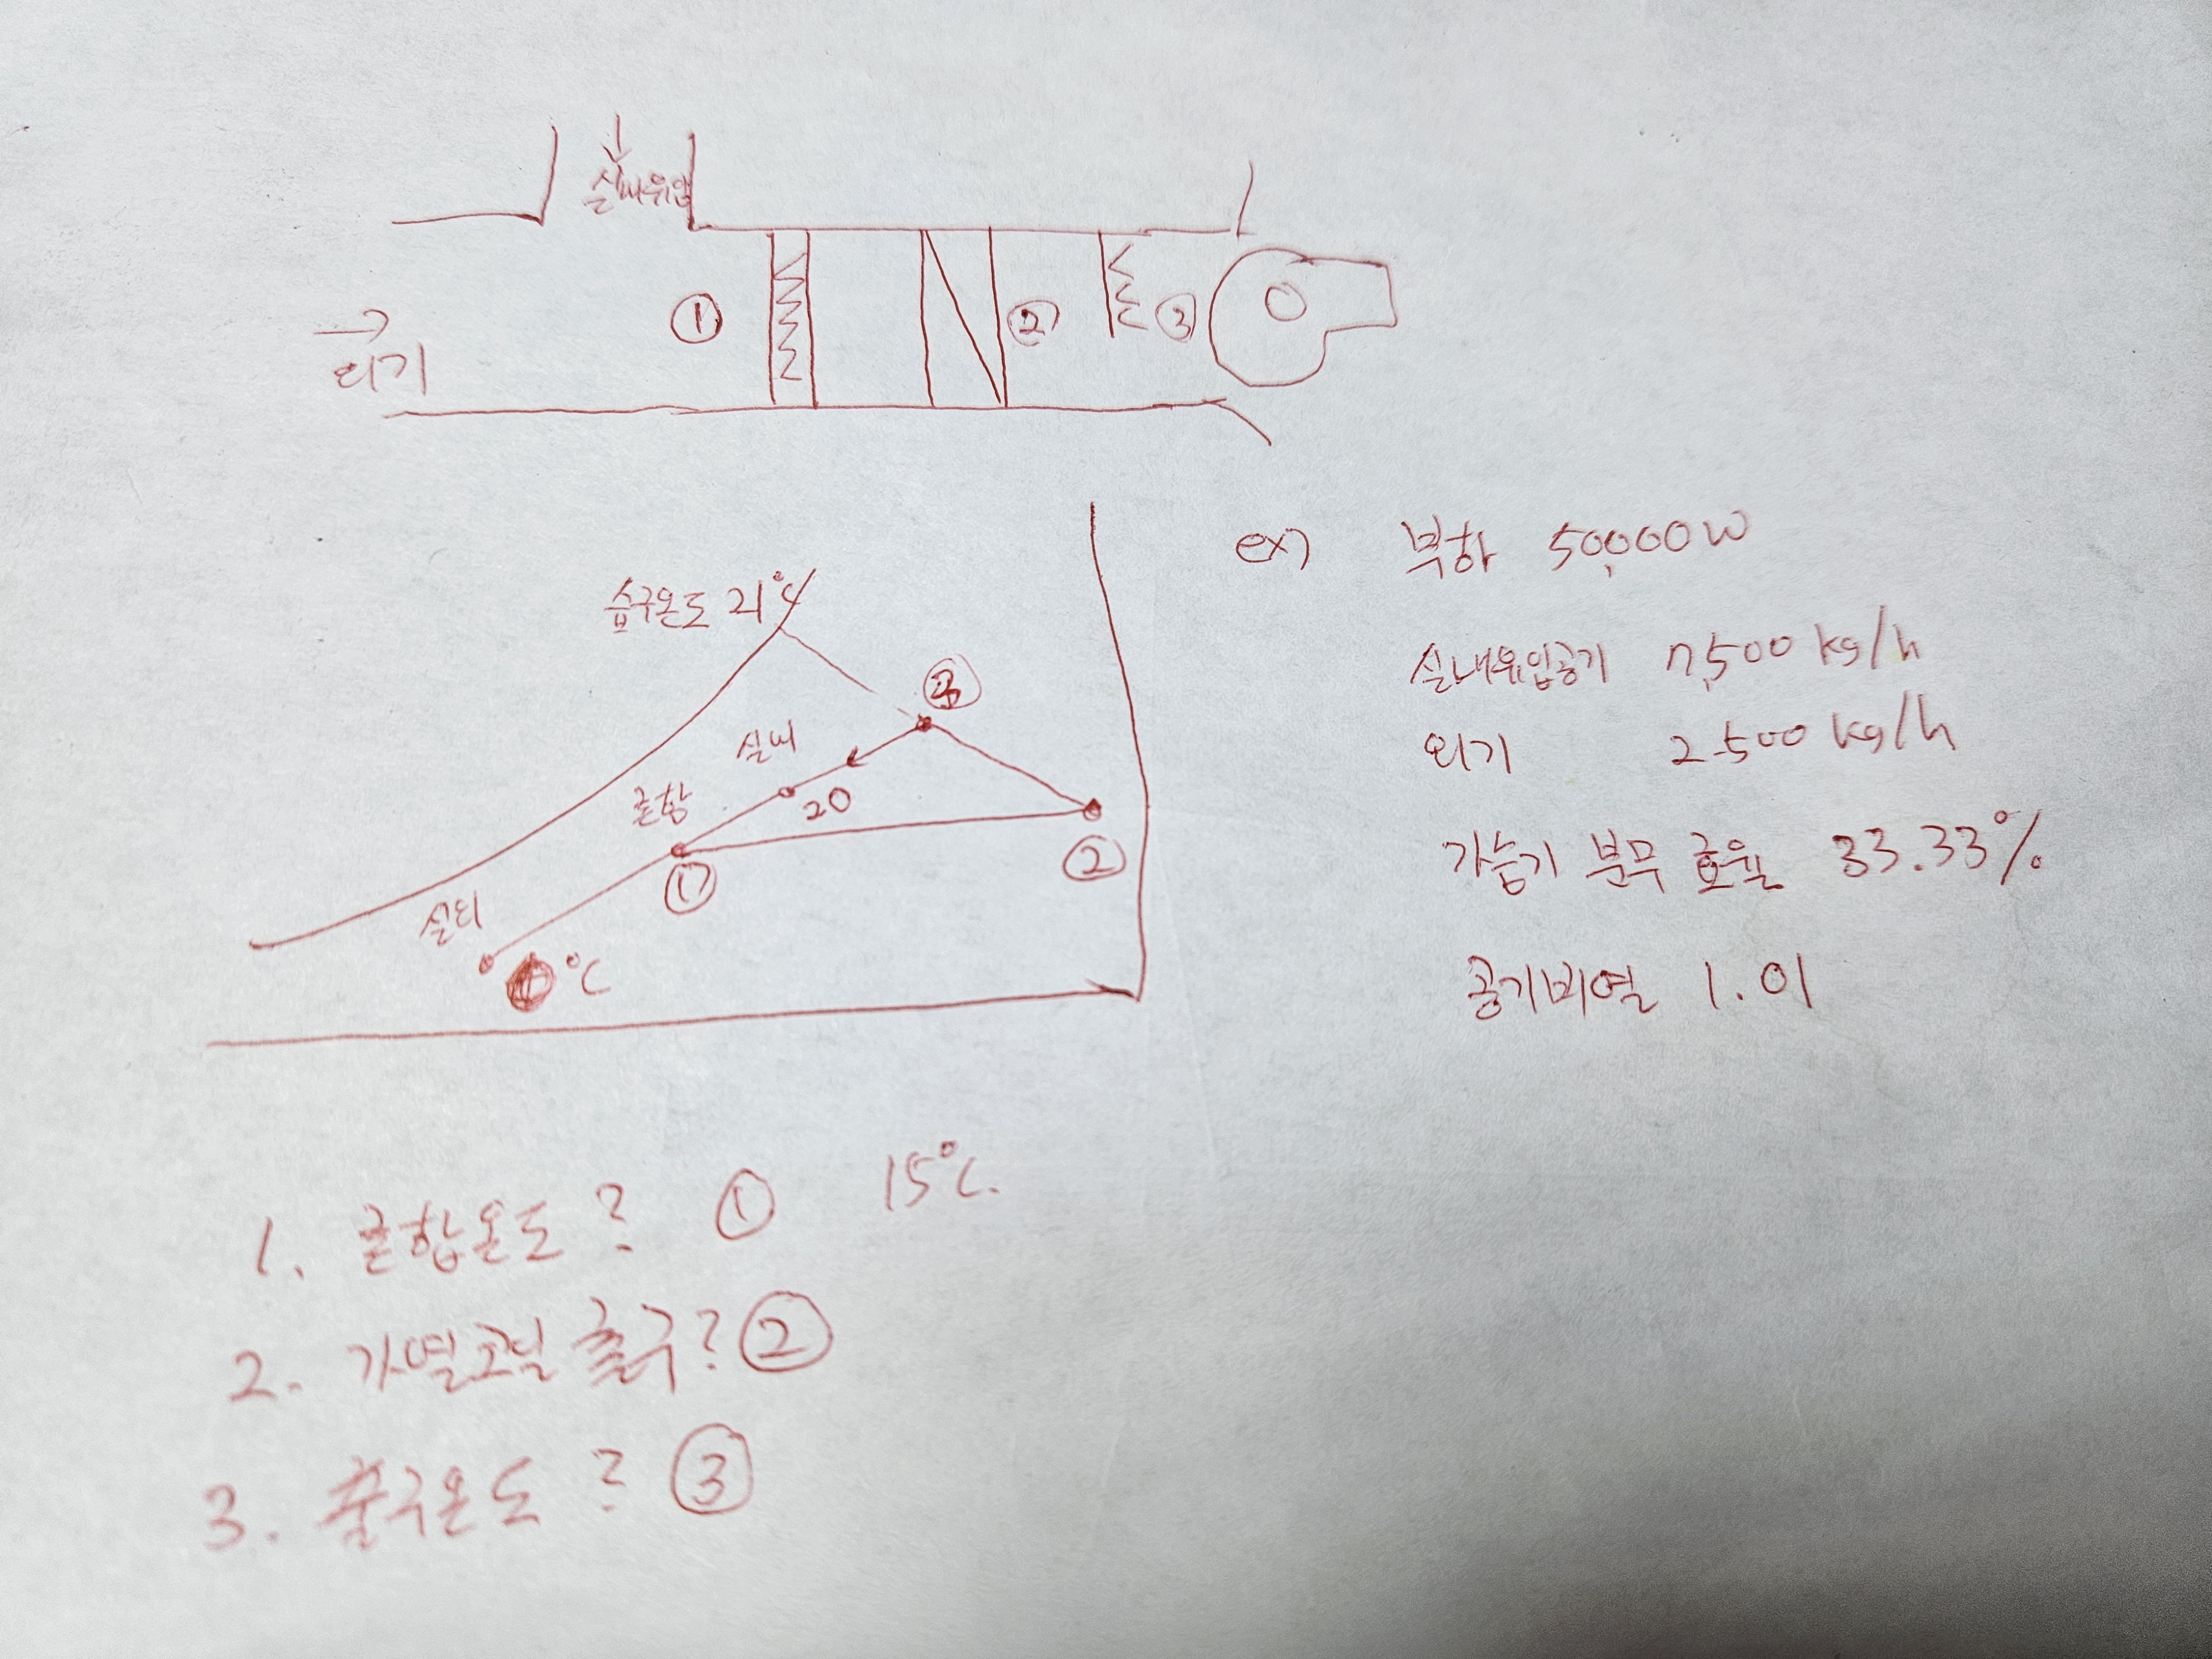 ↓
실내유입
① ② ③
→
외기
습구온도 21℃
③
실내
혼합
20
①
②
실외
℃
ex) 부하 50,000W
실내유입공기 7,500 kg/h
외기 2500 kg/h
가습기 분무 효율 33.33%
공기비열 1.01
1. 혼합온도? ① 15℃.
2. 가열코일 출구? ②
3. 출구온도? ③